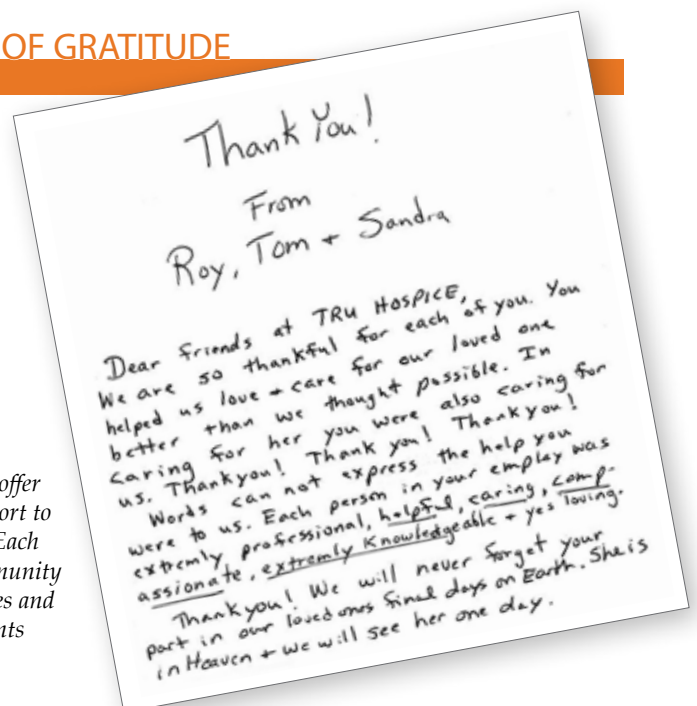 OF GRATITUDE
Thank You!
From
Roy, Tom + Sandra
Dear friends at TRU HOSPICE,
We are so thankful for each of you. You
helped us love + care for our loved one
better than we thought possible. In
caring for her you were also caring for
us. Thankyou! Thank you! Thankyou!
Words can not express the help you
were to us. Each person in your employ was
extremly professional, helpful, caring, comp-
assionate, extremly Knowledgeable + yes loving.
Thankyou! We will never forget your
part in our loved ones final days on Earth. She is
in Heaven + we will see her one day.
offer
ort to
Each
munity
es and
nts